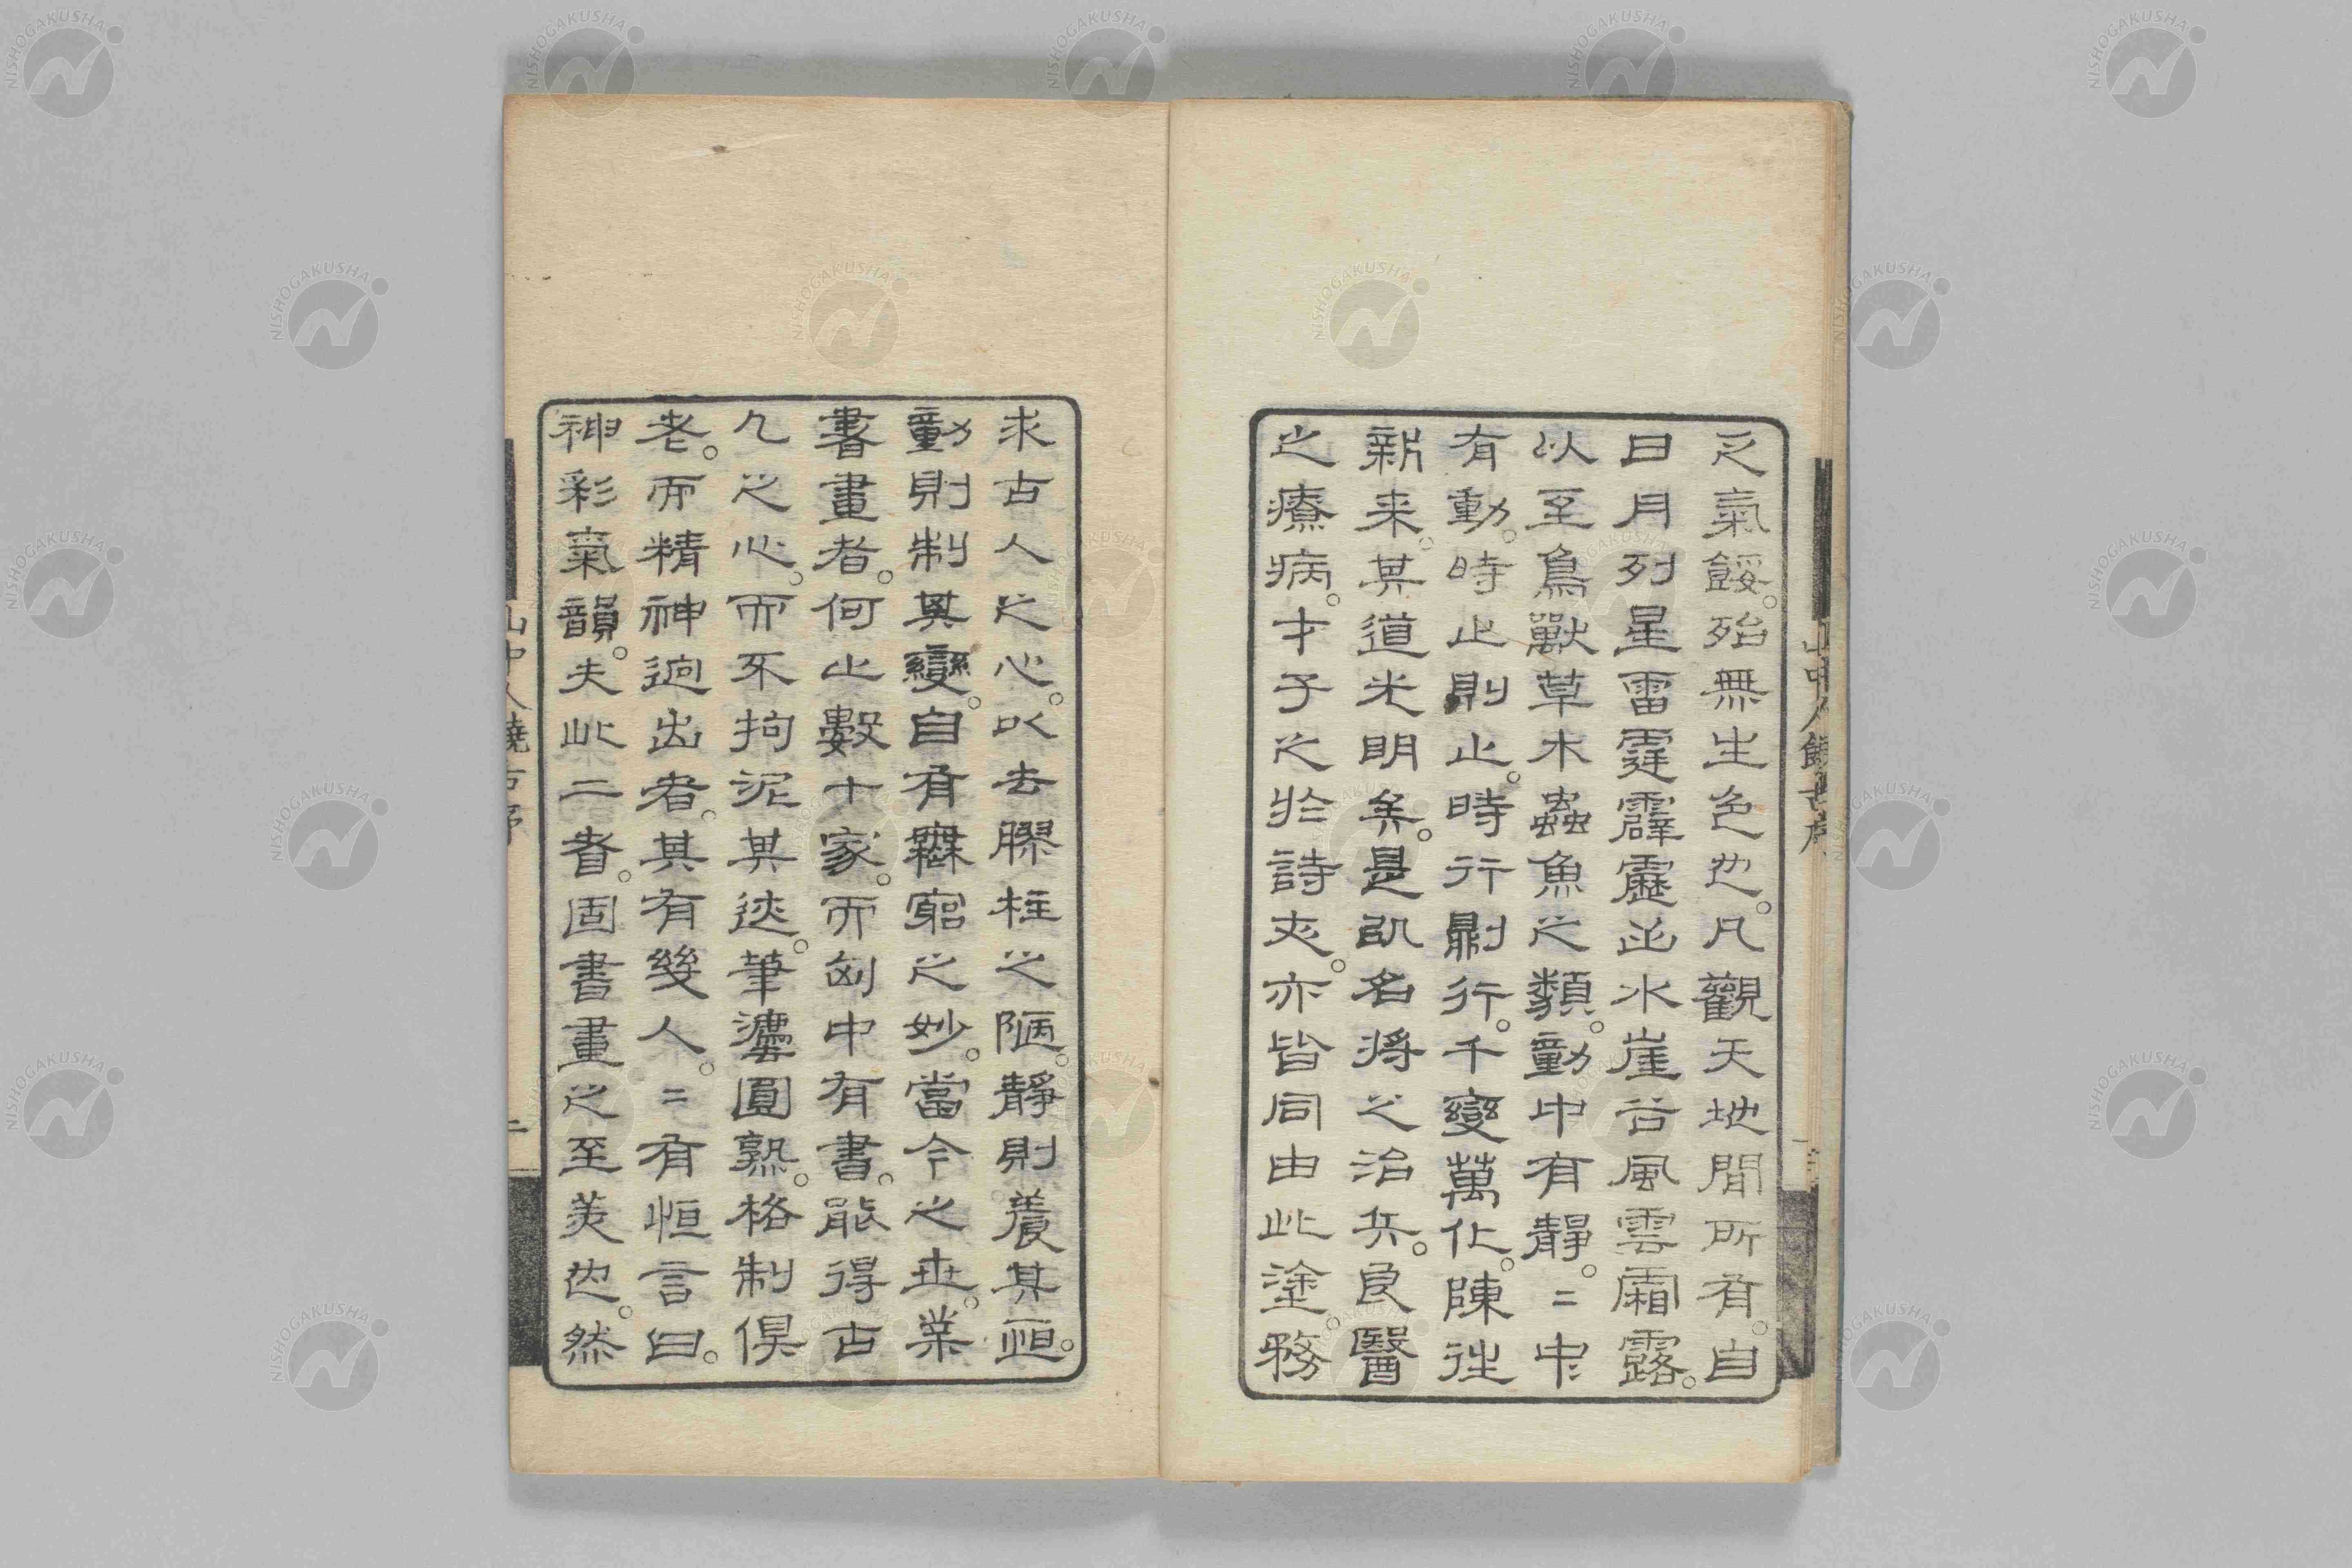 之氣餒。殆無生色也。凡觀天地間所有。自
日月列星雷霆霹靂山水崖谷風雲霜露。
以至鳥獸草木蟲魚之類。動中有靜。〻中
有動。時止則止。時行則行。千變萬化。陳往
新来。其道光明矣。是故名將之治兵。良醫
之療病。才子之於詩文。亦皆同由此塗。務
求古人之心。以去膠柱之陋。靜則養其恒。
動則制其變。自有無窮之妙。當今之世。業
書畫者。何止數十家。而胸中有書。能得古
人之心。而不拘泥其迹。筆墨圓熟。格制俱
老。而精神迥出者。其有幾人。〻有恒言曰。
神彩氣韻。夫此二者。固書畫之至美也。然
山中人饒舌序
二
NISHOGAKUSHA